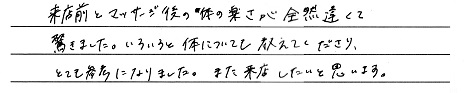 来店前とマッサージ後の体の楽さが全然違くて
驚きました。いろいろと体についても教えてくださり、
とても参考になりました。また来店したいと思います。